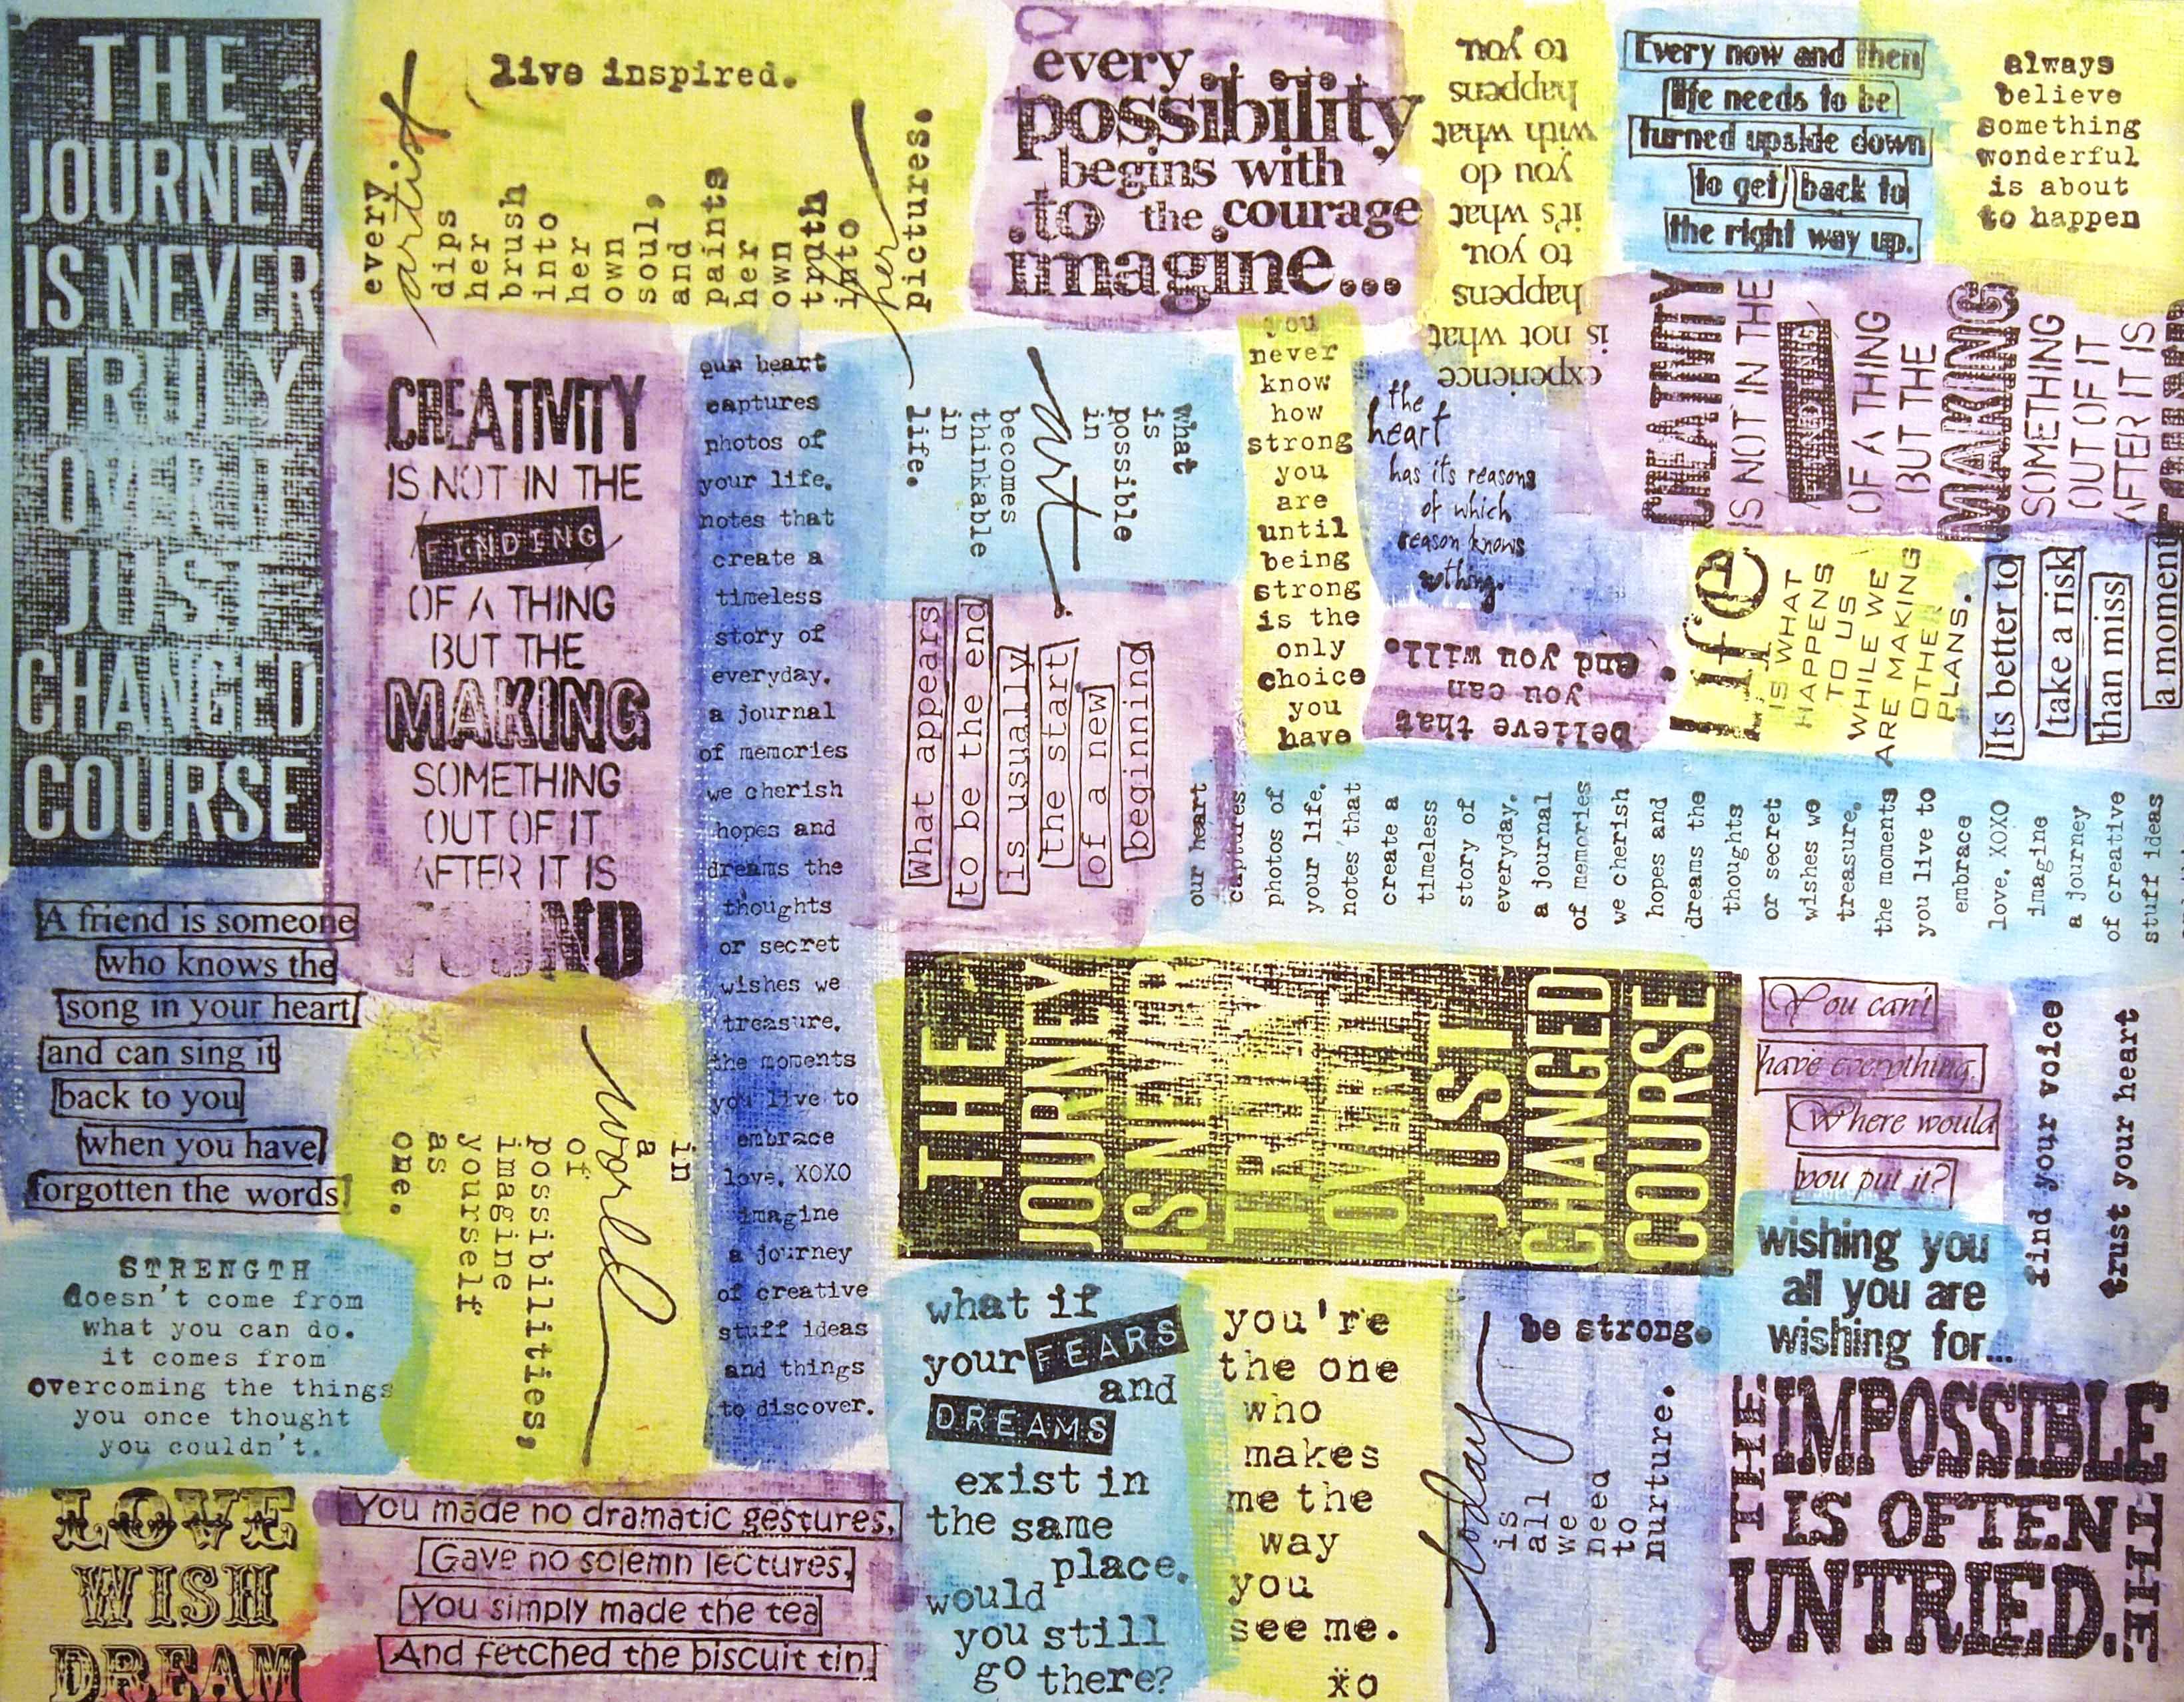 THE
JOURNEY
IS NEVER
TRULY
OVER IT
JUST
CHANGED
COURSE
live inspired.
every
artist
dips
her
brush
into
her
own
soul,
and
paints
her
own
truth
into
her
pictures.
every
possibility
begins with
to the courage
imagine...
experience
is not what
happens
to you.
it's what
you do
with what
happens
to you
Every now and then
life needs to be
turned upside down
to get back to
the right way up.
always
believe
something
wonderful
is about
to happen
CREATIVITY
IS NOT IN THE
FINDING
OF A THING
BUT THE
MAKING
SOMETHING
OUT OF IT
AFTER IT IS
FOUND
our heart
captures
photos of
your life.
notes that
create a
timeless
story of
everyday.
a journal
of memories
we cherish
hopes and
dreams the
thoughts
or secret
wishes we
treasure.
the moments
you live to
embrace
love. XOXO
imagine
a journey
of creative
stuff ideas
and things
to discover.
what
is
possible
in
art
becomes
thinkable
in
life.
you
never
know
how
strong
you
are
until
being
strong
is the
only
choice
you
have
the
heart
has its reasons
of which
reason knows
nothing.
CREATIVITY
IS NOT IN THE
FINDING
OF A THING
BUT THE
MAKING
SOMETHING
OUT OF IT
AFTER IT IS
What appears
to be the end
is usually
the start
of a new
beginning
believe that
you can
and you will.
life
IS WHAT
HAPPENS
TO US
WHILE WE
ARE MAKING
OTHE
PLANS.
Its better to
take a risk
than miss
a moment
our heart
captures
photos of
your life.
notes that
create a
timeless
story of
everyday.
a journal
of memories
we cherish
hopes and
dreams the
thoughts
or secret
wishes we
treasure.
the moments
you live to
embrace
love. XOXO
imagine
a journey
of creative
stuff ideas
A friend is someone
who knows the
song in your heart
and can sing it
back to you
when you have
forgotten the words
in
a
world
of
possibilities,
imagine
yourself
as
one.
THE
JOURNEY
IS NEVER
TRULY
OVER IT
JUST
CHANGED
COURSE
You can't
have everything.
Where would
you put it?
find your voice
trust your heart
STRENGTH
doesn't come from
what you can do.
it comes from
overcoming the things
you once thought
you couldn't.
what if
your FEARS
and
DREAMS
exist in
the same
place.
would
you still
go there?
you're
the one
who
makes
me the
way
you
see me.
xo
be strong.
today
is
all
we
need
to
nurture.
wishing you
all you are
wishing for...
THE
IMPOSSIBLE
IS OFTEN
THE
UNTRIED.
LOVE
WISH
DREAM
You made no dramatic gestures,
Gave no solemn lectures,
You simply made the tea
And fetched the biscuit tin